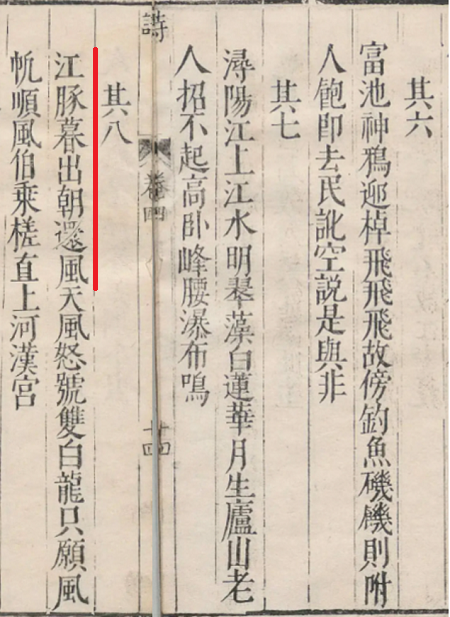 其六
富池神鴉迎棹飛飛飛故傍釣魚磯饑則附
人飽即去民訛空說是與非
其七
潯陽江上江水明翠藻白蓮華月生廬山老
人招不起高臥峰腰瀑布鳴
詩
卷四
其八
江豚暮出朝還風天風怒號雙白龍只願風
帆順風伯乘槎直上河漢宮